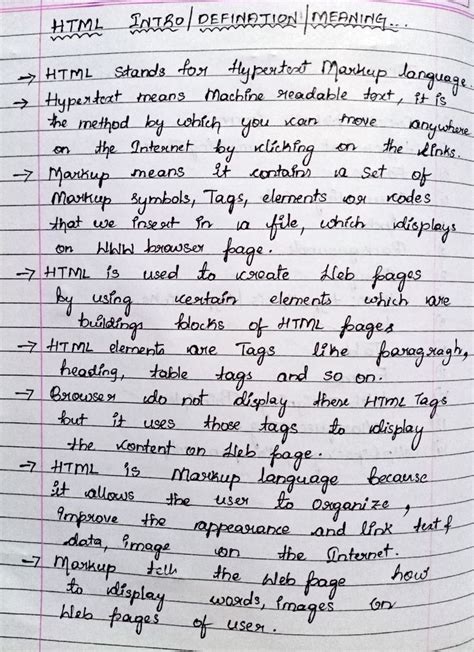 HTML INTRO/DEFINATION/MEANING...
→ HTML stands for Hypertext Markup language.
→ Hypertext means Machine readable text, it is
the method by which you can move anywhere
on the Internet by clicking on the links.
→ Markup means it contains a set of
Markup symbols, Tags, elements or codes
that we insert in a file, which displays
on WWW browser page.
→ HTML is used to create Web pages
by using certain elements which are
buildings blocks of HTML pages
→ HTML elements are Tags like paragragh,
heading, table tags and so on.
→ Browser do not display these HTML Tags
but it uses those tags to display
the content on Web page.
→ HTML is Markup language because
it allows the user to organize,
improve the appearance and link text &
data, image on the Internet.
→ Markup tell the Web page how
to display words, images on
Web pages of user.